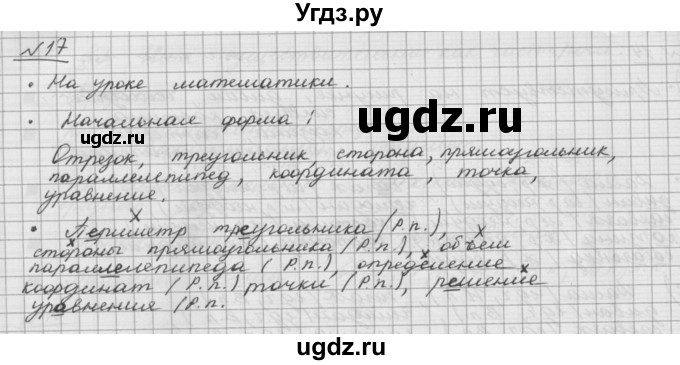 Угдз.ру
№17
• На уроке математики.
• Начальная форма:
Отрезок, треугольник, сторона, прямоугольник,
параллелепипед, координата, точка,
уравнение.
• Периметр треугольника (Р.п.),
стороны прямоугольника (Р.п.), объем
параллелепипеда (Р.п.), определение
координат (Р.п.) точки (Р.п.), решение
уравнения (Р.п.
ugdz.ru
ugdz.ru
ugdz.ru
ugdz.ru